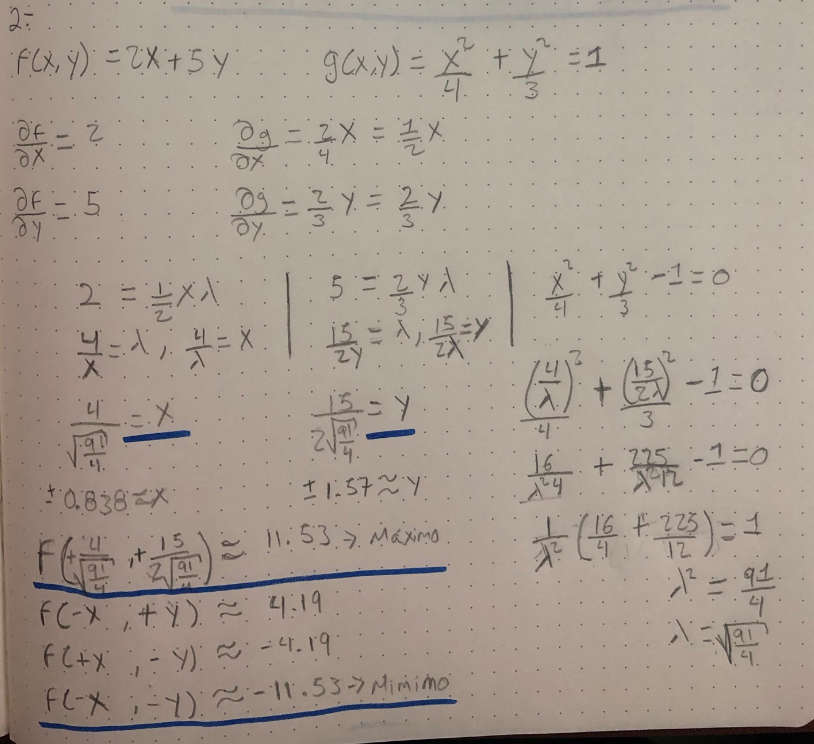 2=
f(x,y) = 2x + 5y
g(x,y) = x²/4 + y²/3 = 1
∂f/∂x = 2
∂g/∂x = 2/4 x = 1/2 x
∂f/∂y = 5
∂g/∂y = 2/3 y = 2/3 y
2 = 1/2 xλ
4/x = λ, 4/λ = x
4/√(91/4) = x
±0.838 ≈ x
5 = 2/3 yλ
15/2y = λ, 15/2λ = y
15/2√(91/4) = y
±1.57 ≈ y
x²/4 + y²/3 - 1 = 0
(4/λ)²/4 + (15/2λ)²/3 - 1 = 0
16/λ²4 + 225/λ²12 - 1 = 0
1/λ² (16/4 + 225/12) = 1
λ² = 91/4
λ = √(91/4)
f(+4/√(91/4), +15/2√(91/4)) ≈ 11.53 → Máximo
f(-x, +y) ≈ 4.19
f(+x, -y) ≈ -4.19
f(-x, -y) ≈ -11.53 → Mínimo